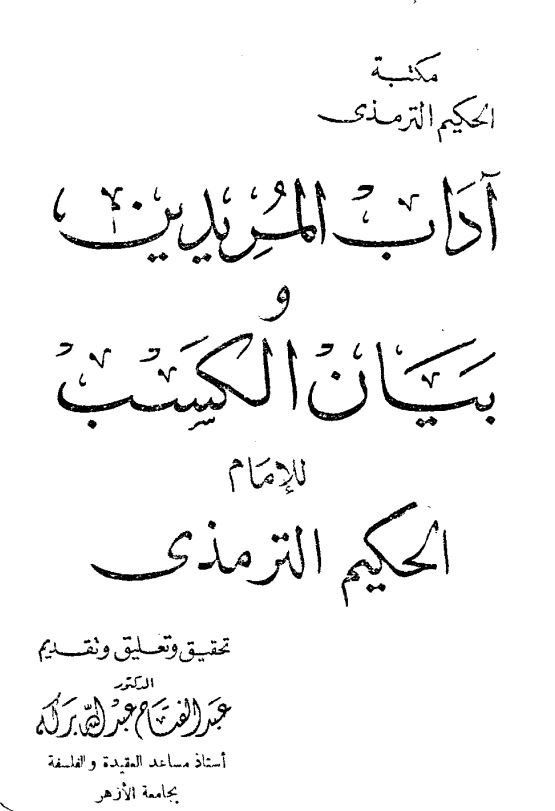 مكتبة
الحكيم الترمذى
آدَاب المُرِيدِين
و
بَيَان الكَسْب
للإمَام
الحكيم الترمذى
تحقيق وتعليق وتقديم
الدكتور
عبد الفتاح عبد الله بركه
أستاذ مساعد العقيدة والفلسفة
بجامعة الأزهر